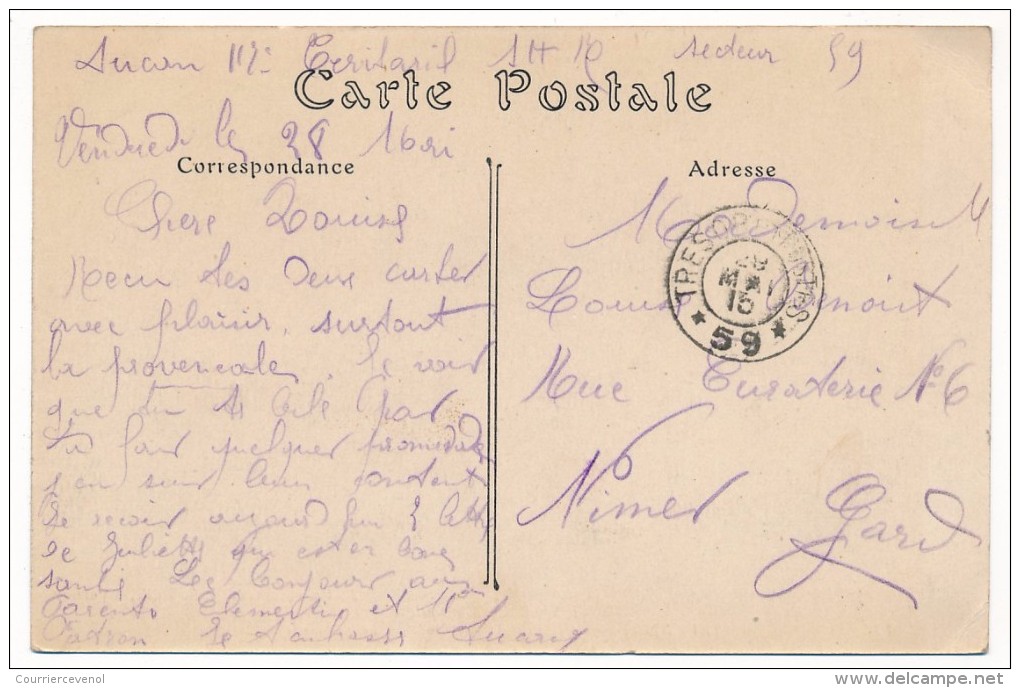 112e Territorial secteur 59
Carte Postale
Vendredi le 28 Mai
Correspondance
Adresse
Chere Louise
Recu tes deux cartes
avec plaisir, surtout
la provencale, je vois
que tu
tu fais quelques promenades
j'en suis bien content
Je recois aujourd'hui lettre
de Juliette qui est en bone
santé Le bonjour aux
Parents Clementin et Mr
Patron Je t'anbrasse
TRESOR ET POSTES
28
MAI
15
* 59 *
Mademoiselle
Louise Benoit
Rue Curaterie N° 6
Nimes
Gard
Courriercevenol
www.delcampe.net